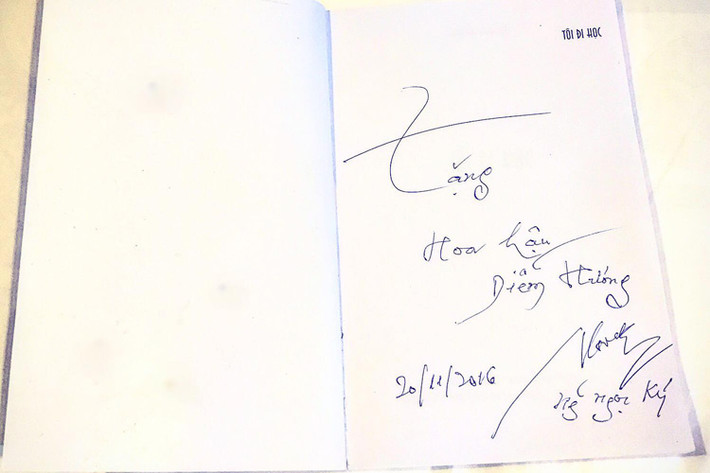 TÔI ĐI HỌC
Tặng
Hoa hậu
Diễm Hương
20/11/2016
Ng ngọc Ký